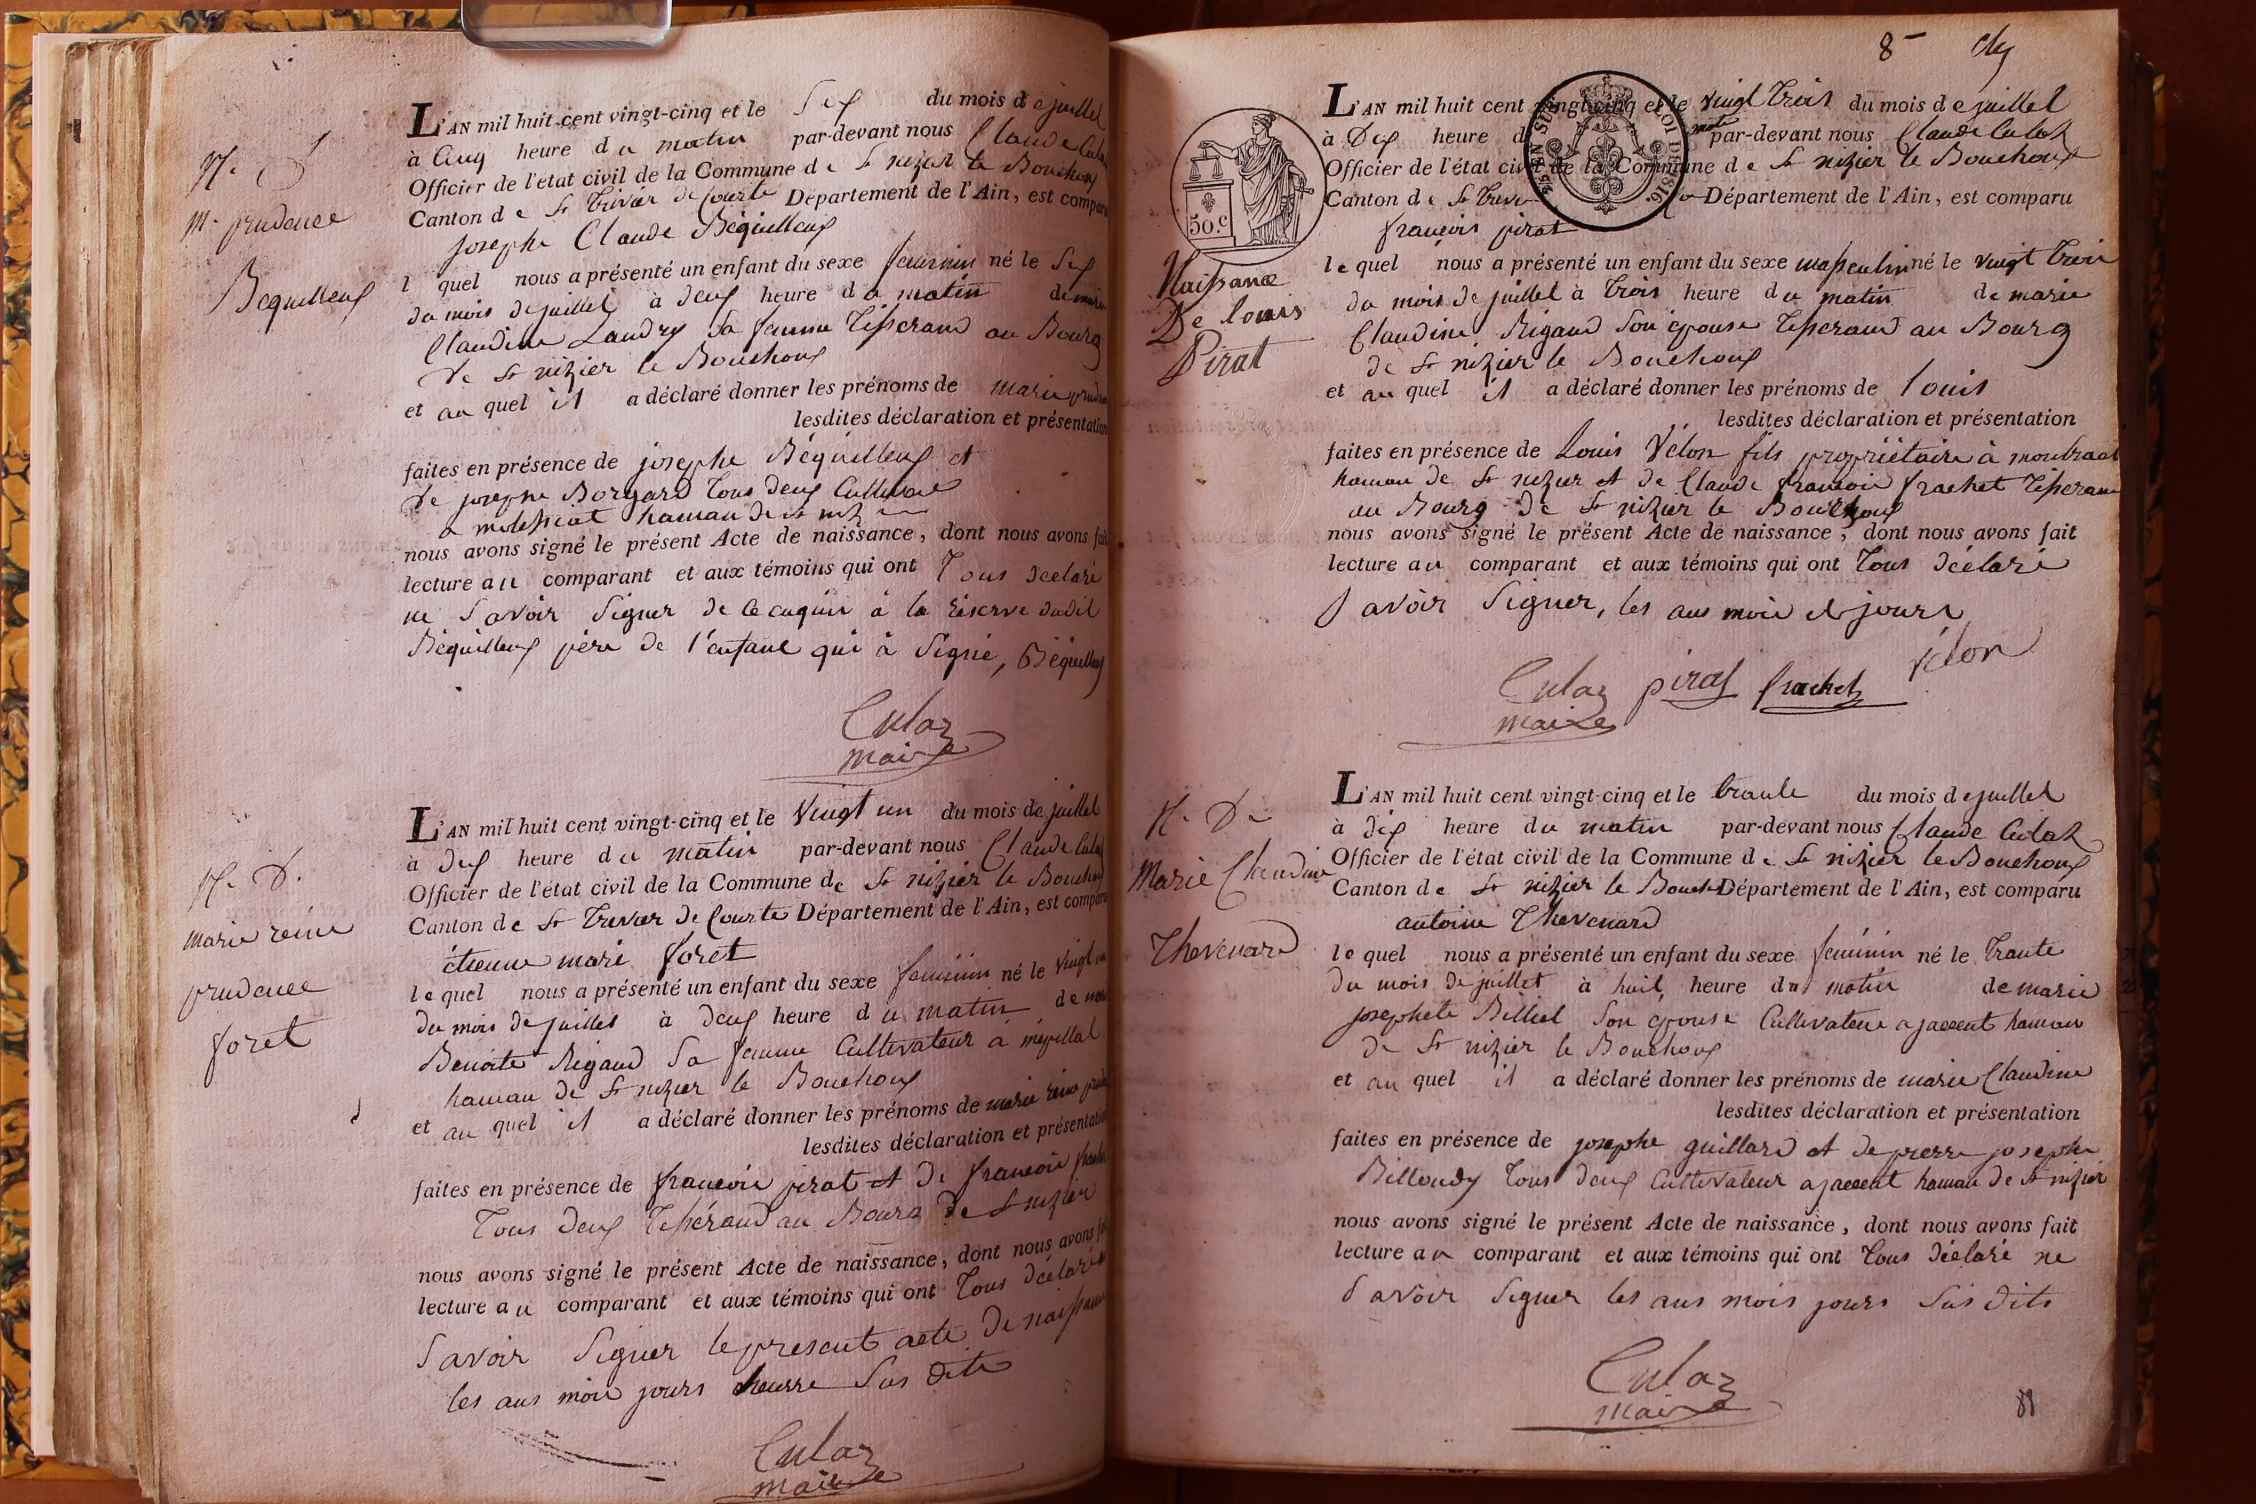 N. D
M. prudence
Bequilleux
L'AN mil huit cent vingt-cinq et le Six du mois de juillet
à Cinq heure du matin par-devant nous Claude
Officier de l'état civil de la Commune de St nizier le Bouchoux
Canton de St Trivier de Courte Département de l'Ain, est
josephe Claude Béquilleux
l quel nous a présenté un enfant du sexe feminin né le Six
du mois de juillet à deux heure du matin de
Claudine Landry Sa femme Tisserand au Bourg
de St nizier le Bouchoux
et au quel il a déclaré donner les prénoms de marie
lesdites déclaration et présentation
faites en présence de josephe Béquilleux et
de josephe Borgard Tous deux Cultivateur
a hamau de st niz
nous avons signé le présent Acte de naissance, dont nous avons fait
lecture au comparant et aux témoins qui ont Tous déclaré
ne Savoir Signer de ce enquis à la Réserve dudit
Béquilleux père de l'enfant qui à Signé, Béquilleux
Culaz
maire
N. D.
marie reine
prudence
foret
L'AN mil huit cent vingt-cinq et le Vingt un du mois de juillet
à dix heure du matin par-devant nous Claude
Officier de l'état civil de la Commune de St nizier le Bouchoux
Canton de St Trivier de Courte Département de l'Ain, est
étienne marie foret
le quel nous a présenté un enfant du sexe feminin né le Vingt un
du mois de juillet à deux heure du matin de
Benoite Rigaud Sa femme Cultivateur à
hamau de St nizier le Bouchoux
et au quel il a déclaré donner les prénoms de marie reine
lesdites déclaration et présentation
faites en présence de francois pirat et de francois
Tous deux Tisserand au Bourg de St nizier
nous avons signé le présent Acte de naissance, dont nous avons
lecture au comparant et aux témoins qui ont Tous déclaré
Savoir Signer le present acte de naissance
les ans mois jours heurre Sus dits
Culaz
maire
8
50.C
Naissance
De louis
Pirat
L'AN mil huit cent vingt-cinq et le vingt Trois du mois de juillet
à Dix heure d matin par-devant nous Claude Culaz
Officier de l'état civil de la Commune de St nizier le Bouchoux
Canton de St Département de l'Ain, est comparu
francois pirat
le quel nous a présenté un enfant du sexe masculin né le vingt Trois
du mois de juillet à Trois heure du matin de marie
Claudine Rigaud Son épouse Tisserand au Bourg
de St nizier le Bouchoux
et au quel il a déclaré donner les prénoms de louis
lesdites déclaration et présentation
faites en présence de Louis Vélon fils propriétaire à
hamau de St nizier et de Claude francois frachet Tisserand
au Bourg de St nizier le Bouchoux
nous avons signé le présent Acte de naissance, dont nous avons fait
lecture au comparant et aux témoins qui ont Tous déclaré
Savoir Signer, les ans mois et jours
Culaz pirat frachet vélon
maire
N. D
Marie Claudine
Thevenard
L'AN mil huit cent vingt-cinq et le trante du mois de juillet
à dix heure du matin par-devant nous Claude Culaz
Officier de l'état civil de la Commune de St nizier le Bouchoux
Canton de St nizier le Bouch Département de l'Ain, est comparu
antoine Thevenard
le quel nous a présenté un enfant du sexe feminin né le Trante
du mois de juillet à huit heure du matin de marie
josephete Billiet Son épouse Cultivateur a hamau
de St nizier le Bouchoux
et au quel il a déclaré donner les prénoms de marie Claudine
lesdites déclaration et présentation
faites en présence de josephe guillard et de pierre josephe
Billoudy Tous deux Cultivateur a hamau de St nizier
nous avons signé le présent Acte de naissance, dont nous avons fait
lecture au comparant et aux témoins qui ont Tous déclaré ne
Savoir Signer les ans mois jours Sus dits
Culaz
maire